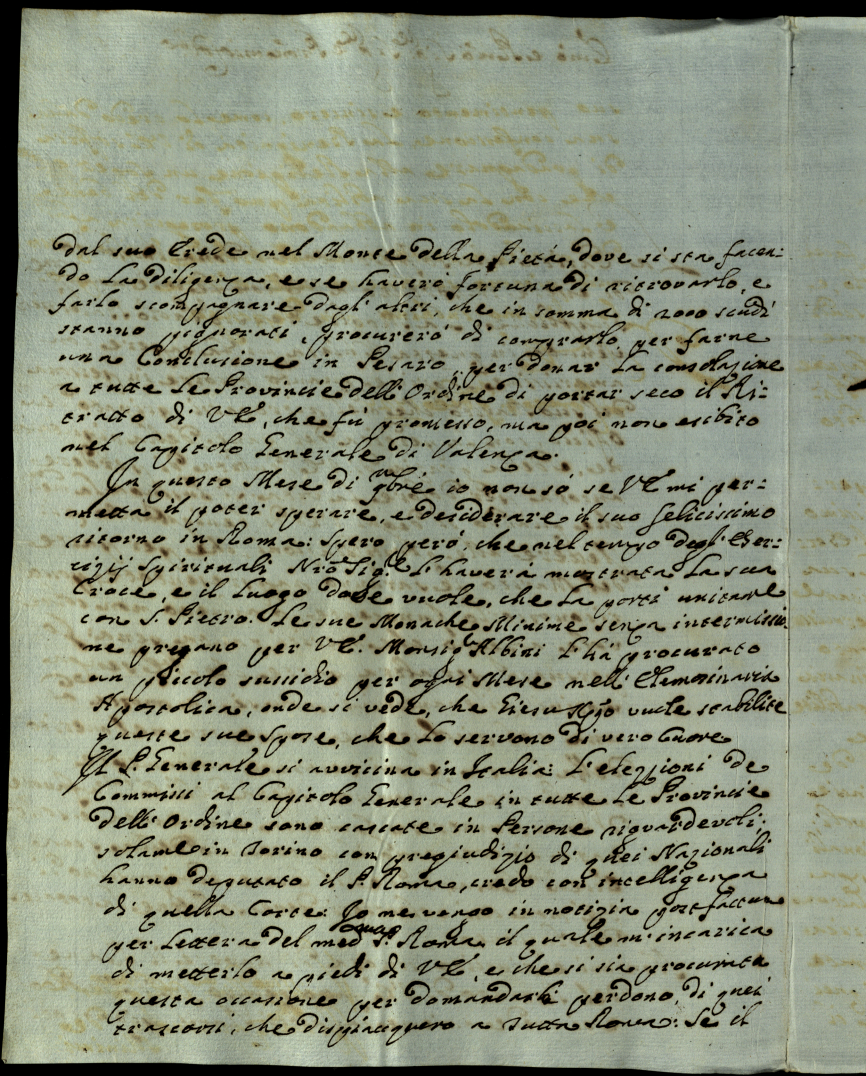 dal suo Erede nel Monte della Pietà, dove si sta facen-
do la diligenza, e se haverò fortuna di ritrovarlo, e
farlo scompagnare dagl'altri, che in somma di 2000 scudi
stanno pignorati, procurerò di comprarlo, per farne
una Conclusione in Pesaro, per donar la consolazione
a tutte le Provincie dell'Ordine di portar seco il Ri-
tratto di VE, che fù promesso, ma poi non esibito
nel Capitolo Generale di Valenza.
In questo Mese di 9bre io non sò se VE mi per-
metta il poter sperare, e desiderare il suo felicissimo
ritorno in Roma: spero però, che nel tempo degl'Eser-
cizij Spirituali Nro Sigre l'haverà mostrata la sua
Croce, e il luogo dove vuole, che la porti unitame
con S. Pietro. Le sue Monache Minime senza intermissio-
ne pregano per VE. Monsigr Albini l'hà procurato
un piccolo sussidio per ogni Mese nell'Elemosinaria
Apostolica, onde si vede, che Giesu Xpo vuole stabilite
queste sue Spose, che lo servono di vero Cuore
Il P. Generale si avvicina in Italia: L'elezzioni de
Commissi al Capitolo Generale in tutte le Provincie
dell'Ordine sono cascate in Persone riguardevoli:
solame in Torino con pregiudizio di quei Nazionali
hanno deputato il P. Roma, credo con intelligenza
di quella Corte: Io ne vengo in notizia post factum
per Lettera del med P. Roma, il quale m'incarica
di metterlo a piedi di VE, e che si sia procurata
questa occasione per domandarli perdono di quei
trascorsi, che dispiacquero a tutta Roma: Se il